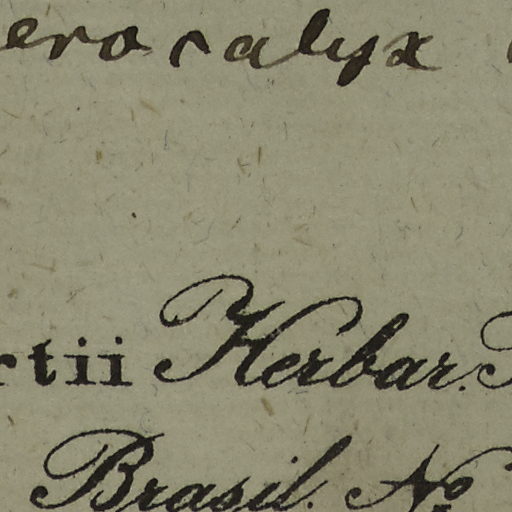 erocalyx
rtii Herbar.
Brasil. No